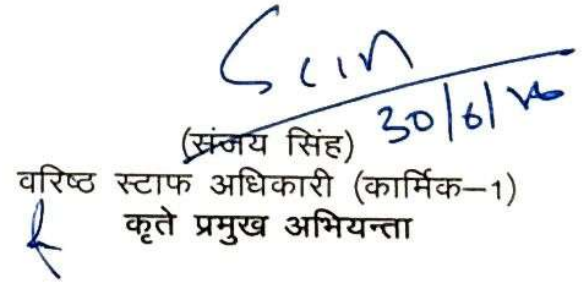 30/6/26
(संजय सिंह)
वरिष्ठ स्टाफ अधिकारी (कार्मिक–1)
कृते प्रमुख अभियन्ता